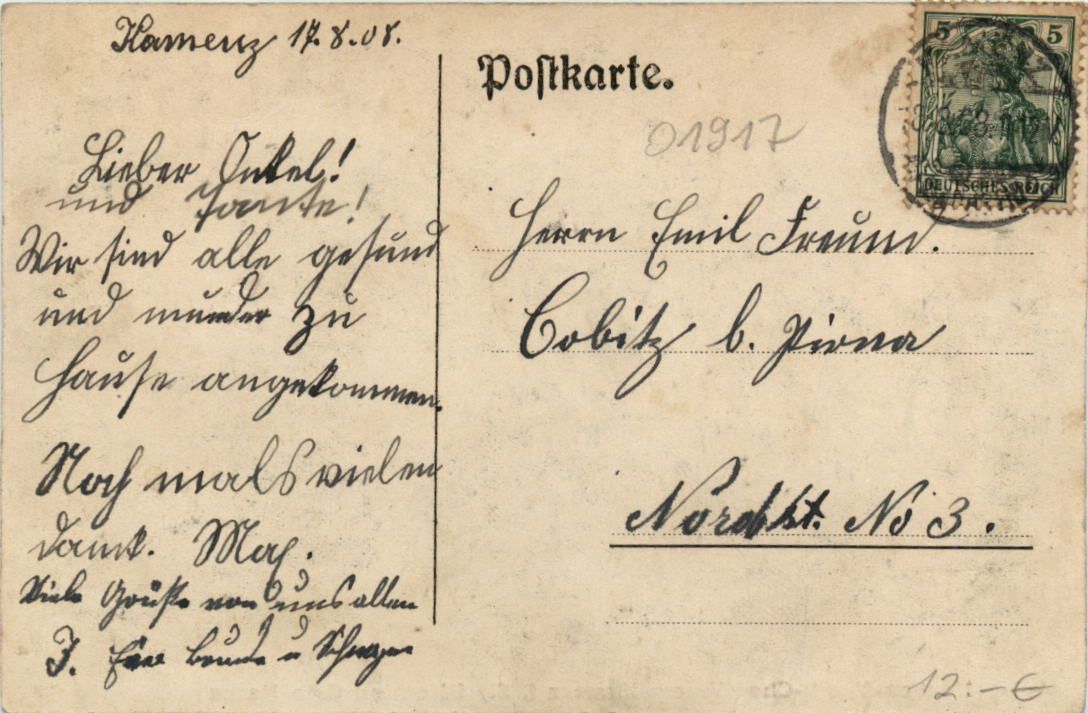 Kamenz 17.8.08.
Postkarte.
01917
5 5
DEUTSCHES REICH
Lieber Onkel!
und Tante!
Wir sind alle gesund
und munder zu
Hause angekommen.
Noch mals vielen
dank. Max.
Viele Grüße von uns allen
J. Eure Bruder u Schwager
Herrn Emil Freund.
Cobitz b. Pirna
Nordst. No 3.
12.-€